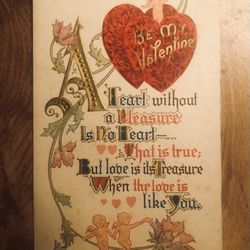 BE MY
Valentine
A Heart without
a Pleasure
Is No Heart—
That is true;
But love is its Treasure
When the love is
like You.